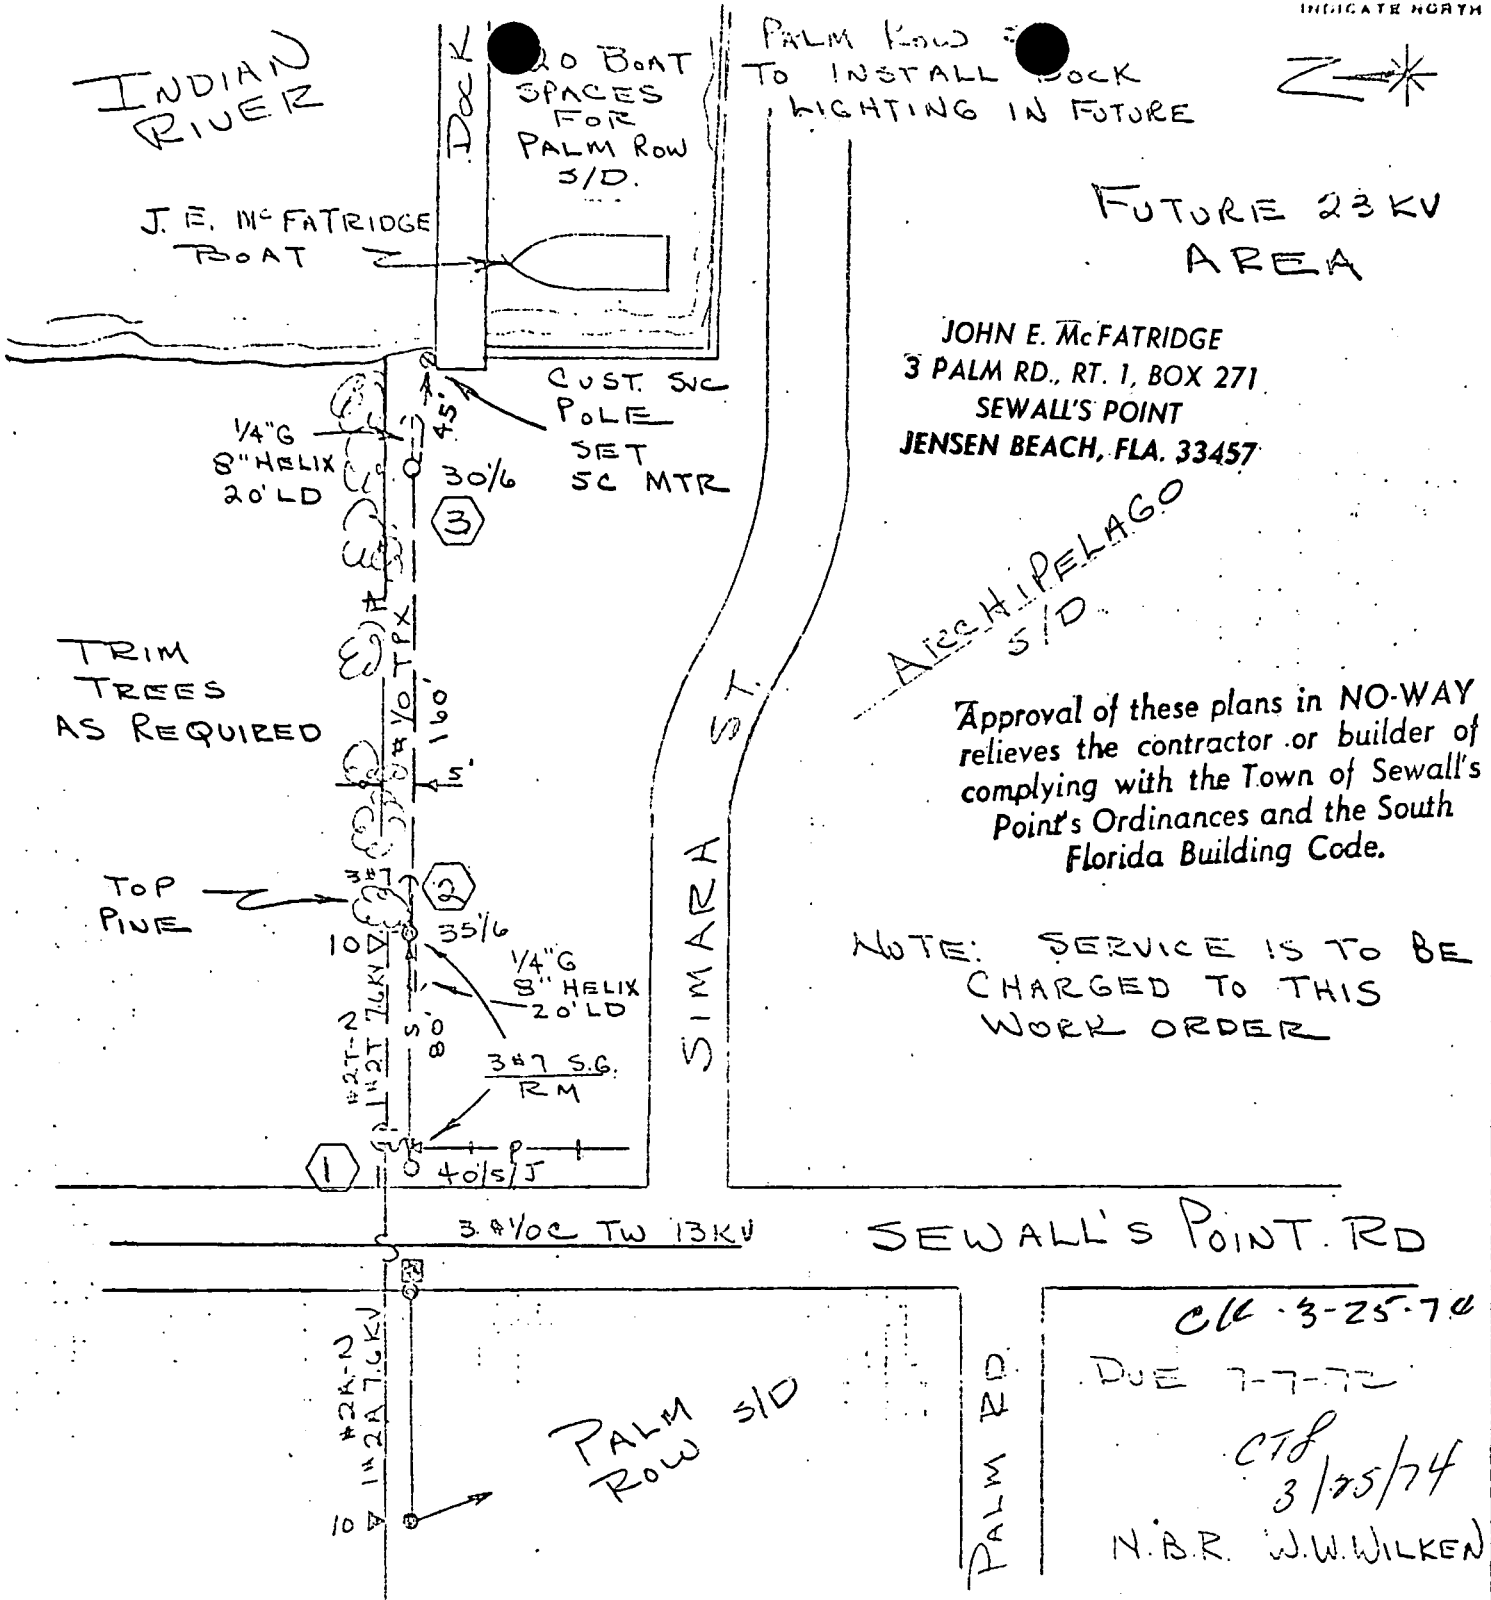 INDICATE NORTH
INDIAN
RIVER
DOCK
20 BOAT
SPACES
FOR
PALM ROW
S/D.
PALM ROW
TO INSTALL DOCK
LIGHTING IN FUTURE
J. E. McFATRIDGE
BOAT
FUTURE 23 KV
AREA
JOHN E. McFATRIDGE
3 PALM RD., RT. 1, BOX 271
SEWALL'S POINT
JENSEN BEACH, FLA. 33457
CUST. SVC
POLE
SET
5C MTR
45'
1/4" G
8" HELIX
20' LD
30/6
3
ARCHIPELAGO
S/D.
TRIM
TREES
AS REQUIRED
#1/0 TPX
160'
5'
SIMARA ST.
Approval of these plans in NO-WAY
relieves the contractor or builder of
complying with the Town of Sewall's
Point's Ordinances and the South
Florida Building Code.
TOP
PINE
3#7
2
35/6
10
1/4" G
8" HELIX
20' LD
#2T-2
1#2T 7.6KV
S
80'
3#7 S.G.
RM
NOTE: SERVICE IS TO BE
CHARGED TO THIS
WORK ORDER
1
P
40/5/J
3#1/0C TW 13KV
SEWALL'S POINT RD
#2A-2
1#2A 7.6KV
10
PALM
ROW S/D
PALM RD.
3-25-74
DUE 7-7-72
3/25/74
N.B.R. W.W. WILKEN